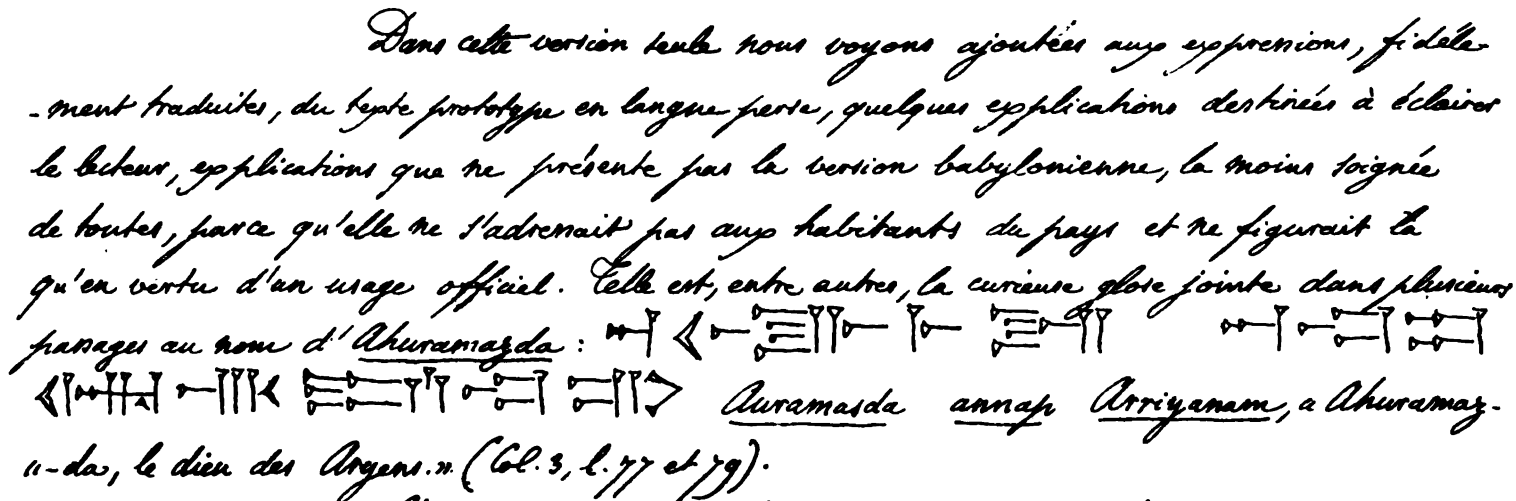 Dans cette version seule nous voyons ajoutées aux expressions, fidéle-
-ment traduites, du texte prototype en langue perse, quelques explications destinées à éclairer
le lecteur, explications que ne présente pas la version babylonienne, la moins soignée
de toutes, parce qu'elle ne s'adressait pas aux habitants du pays et ne figurait là
qu'en vertu d'un usage officiel. Telle est, entre autres, la curieuse glose jointe dans plusieurs
passages au nom d'Ahuramazda :
Auramasda annap Arriyanam, « Ahuramaz-
«-da, le dieu des Aryens. » (Col. 3, l. 77 et 79).